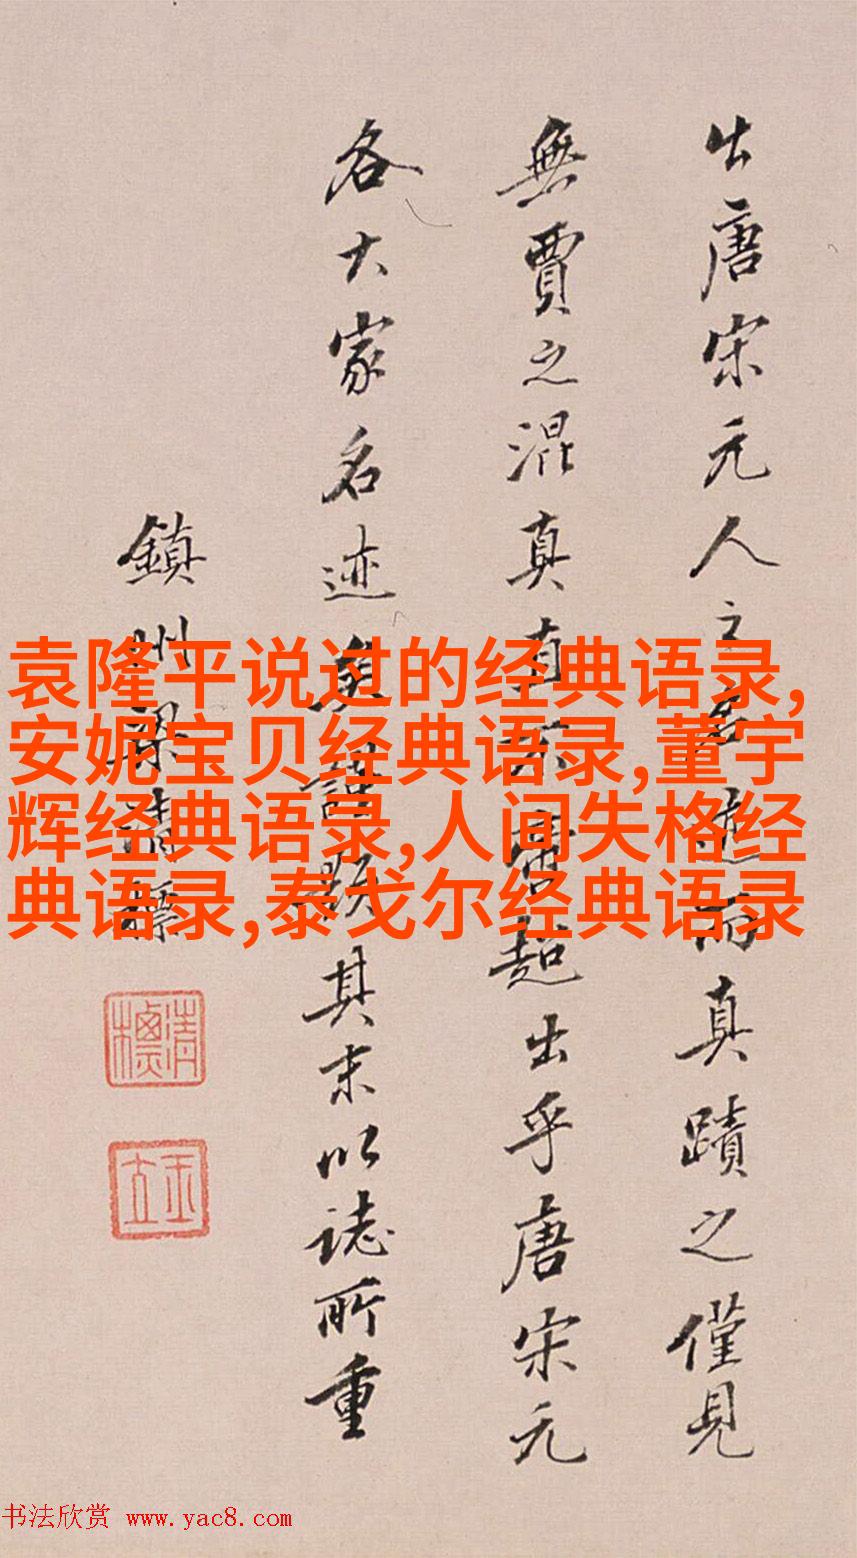 出唐宋元人之名迹而真蹟之僅見
無賈之混真超出乎唐宋元
各大家名迹矣謹跋其末以誌所重
鎮州梁清標
清標
玉立
袁隆平说过的经典语录,
安妮宝贝经典语录,董宇
辉经典语录,人间失格经
典语录,泰戈尔经典语录
书法欣赏 www.yac8.com